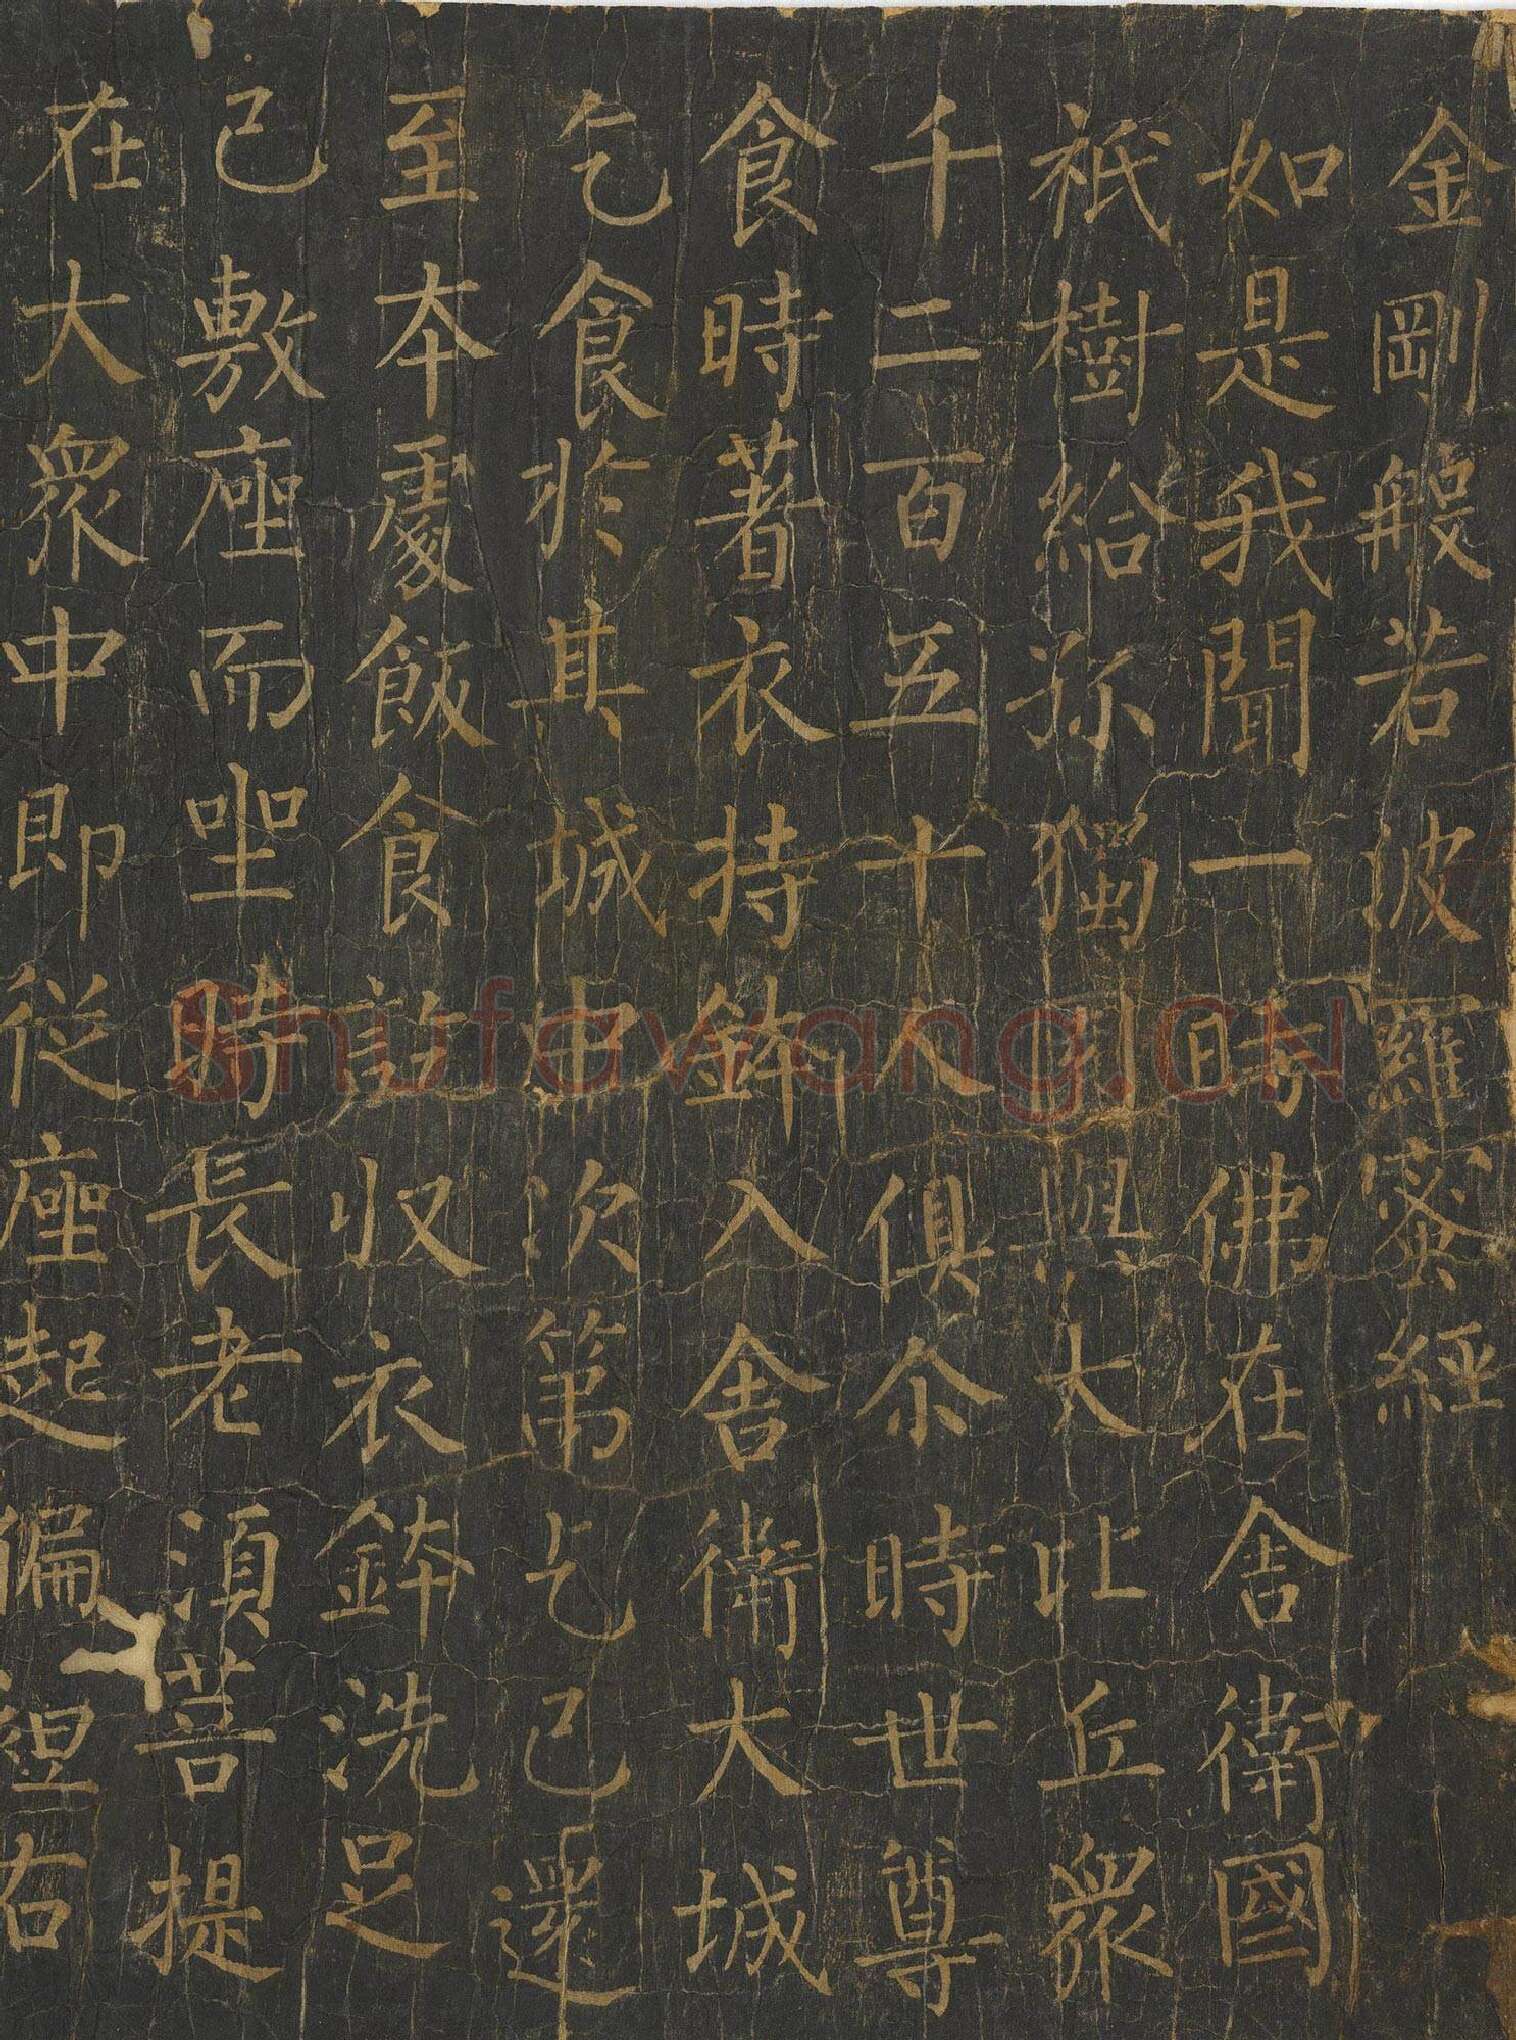 金剛般若波羅蜜經
如是我聞一時佛在舍衛國
祇樹給孤獨園與大比丘衆
千二百五十人俱尒時世尊
食時著衣持鉢入舍衛大城
乞食於其城中次第乞已還
至本處飯食訖収衣鉢洗足
已敷座而坐時長老須菩提
在大衆中即從座起偏袒右
Shufawang.CN